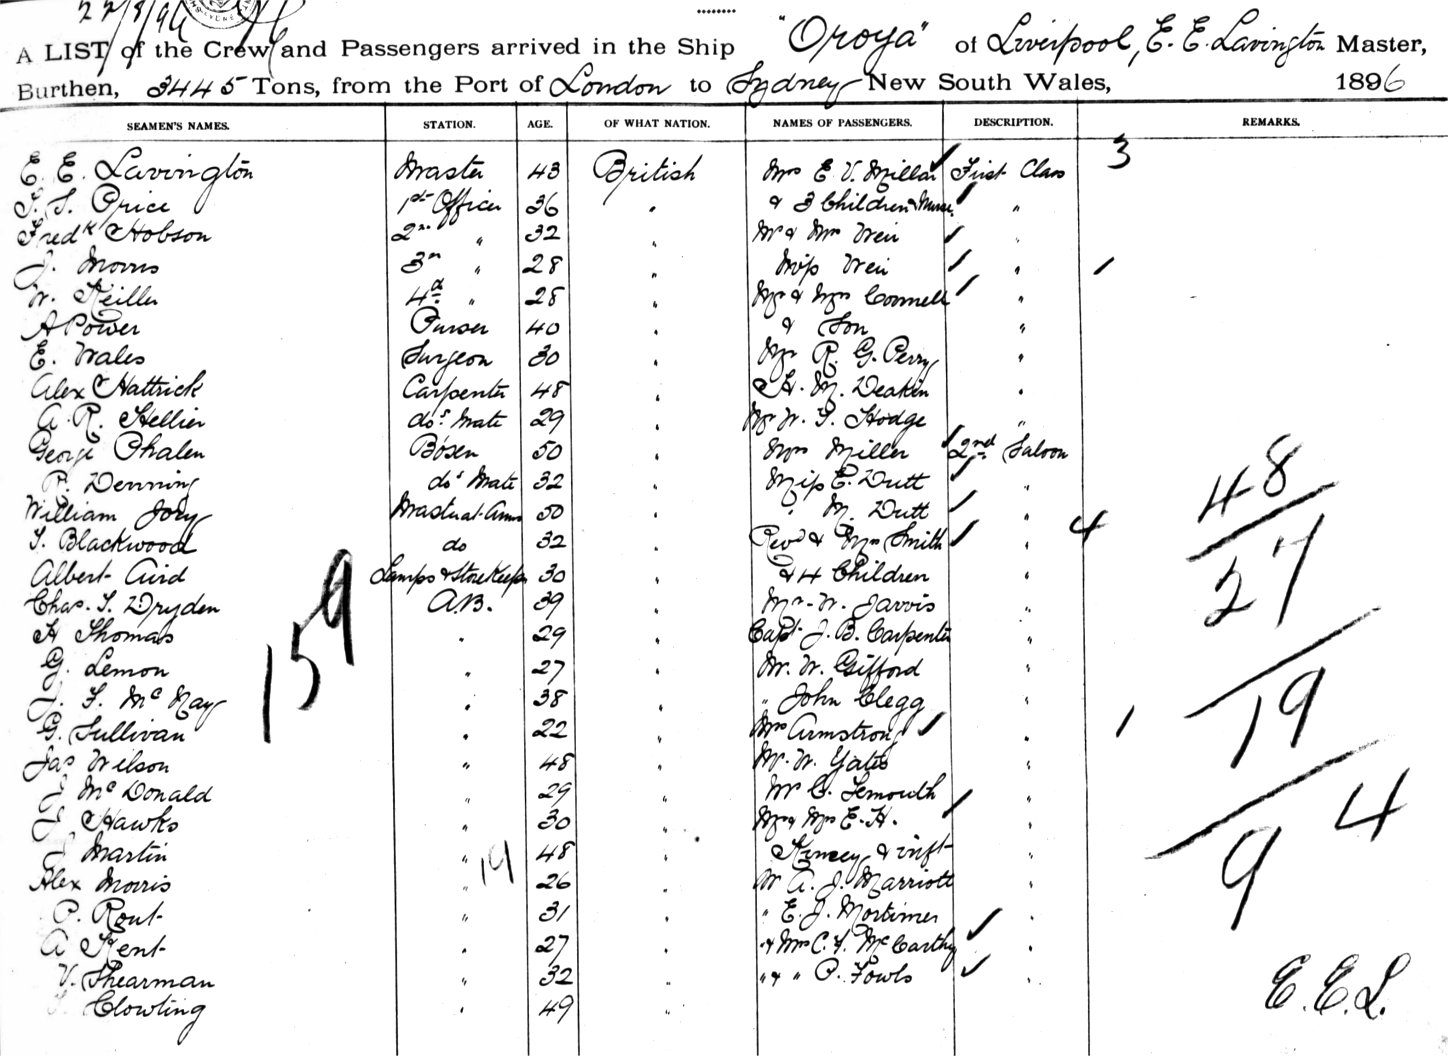 22/8/96
A LIST of the Crew and Passengers arrived in the Ship "Oroya" of Liverpool, E. E. Lavington Master,
Burthen, 3445 Tons, from the Port of London to Sydney New South Wales, 1896
SEAMEN'S NAMES. STATION. AGE. OF WHAT NATION. NAMES OF PASSENGERS. DESCRIPTION. REMARKS.
E. E. Lavington Master 43 British Mrs E. V. Millar First Class 3
Price 1st Officer 36 " & 3 Children & Nurse "
Fredk Hobson 2nd " 32 " Mr & Mrs Weir "
J. Morris 3rd " 28 " Miss Weir "
W. Keiller 4th " 28 " Mr & Mrs Connell "
A Power Purser 40 " & Son "
E. Wales Surgeon 30 " Mr R. G. Perry "
Alex Hattrick Carpenter 48 " H. M. Deakin "
A. R. Hellier do's Mate 29 " Mr W. T. Hodge "
George Phalen Bosen 50 " Mrs Miller 2nd Saloon
Denning do's Mate 32 " Miss E. Dutt "
William Jory Mastr at Arms 50 " " M. Dutt "
T. Blackwood do 32 " Revd & Mrs Smith " 4
Albert Aird Lamps & StoreKeeper 30 " & 4 Children "
Chas. T. Dryden A.B. 39 " Mr. W. Jarvis "
H Thomas " 29 " Capt. J. B. Carpenter "
G. Lemon " 27 " Mr. W. Gifford "
J. T. McNay " 38 " " John Clegg "
G. Sullivan " 22 " Mrs Armstrong " 1
Jas Wilson " 48 " Mr. W. Yates "
J McDonald " 29 " Mr C. "
J Hawks " 30 " Mr & Mrs E. H. "
J Martin " 48 " Kinsey & inft "
Alex Morris " 26 " Mr A. J. Marriott "
P. Rout " 31 " " E. J. Mortimer "
A Kent " 27 " " & Mrs C. T. McCarthy "
V. Shearman " 32 " " & " P. Fowls "
Clowting " 49 "
159
19
48
27
19
4
9
E. E. L.